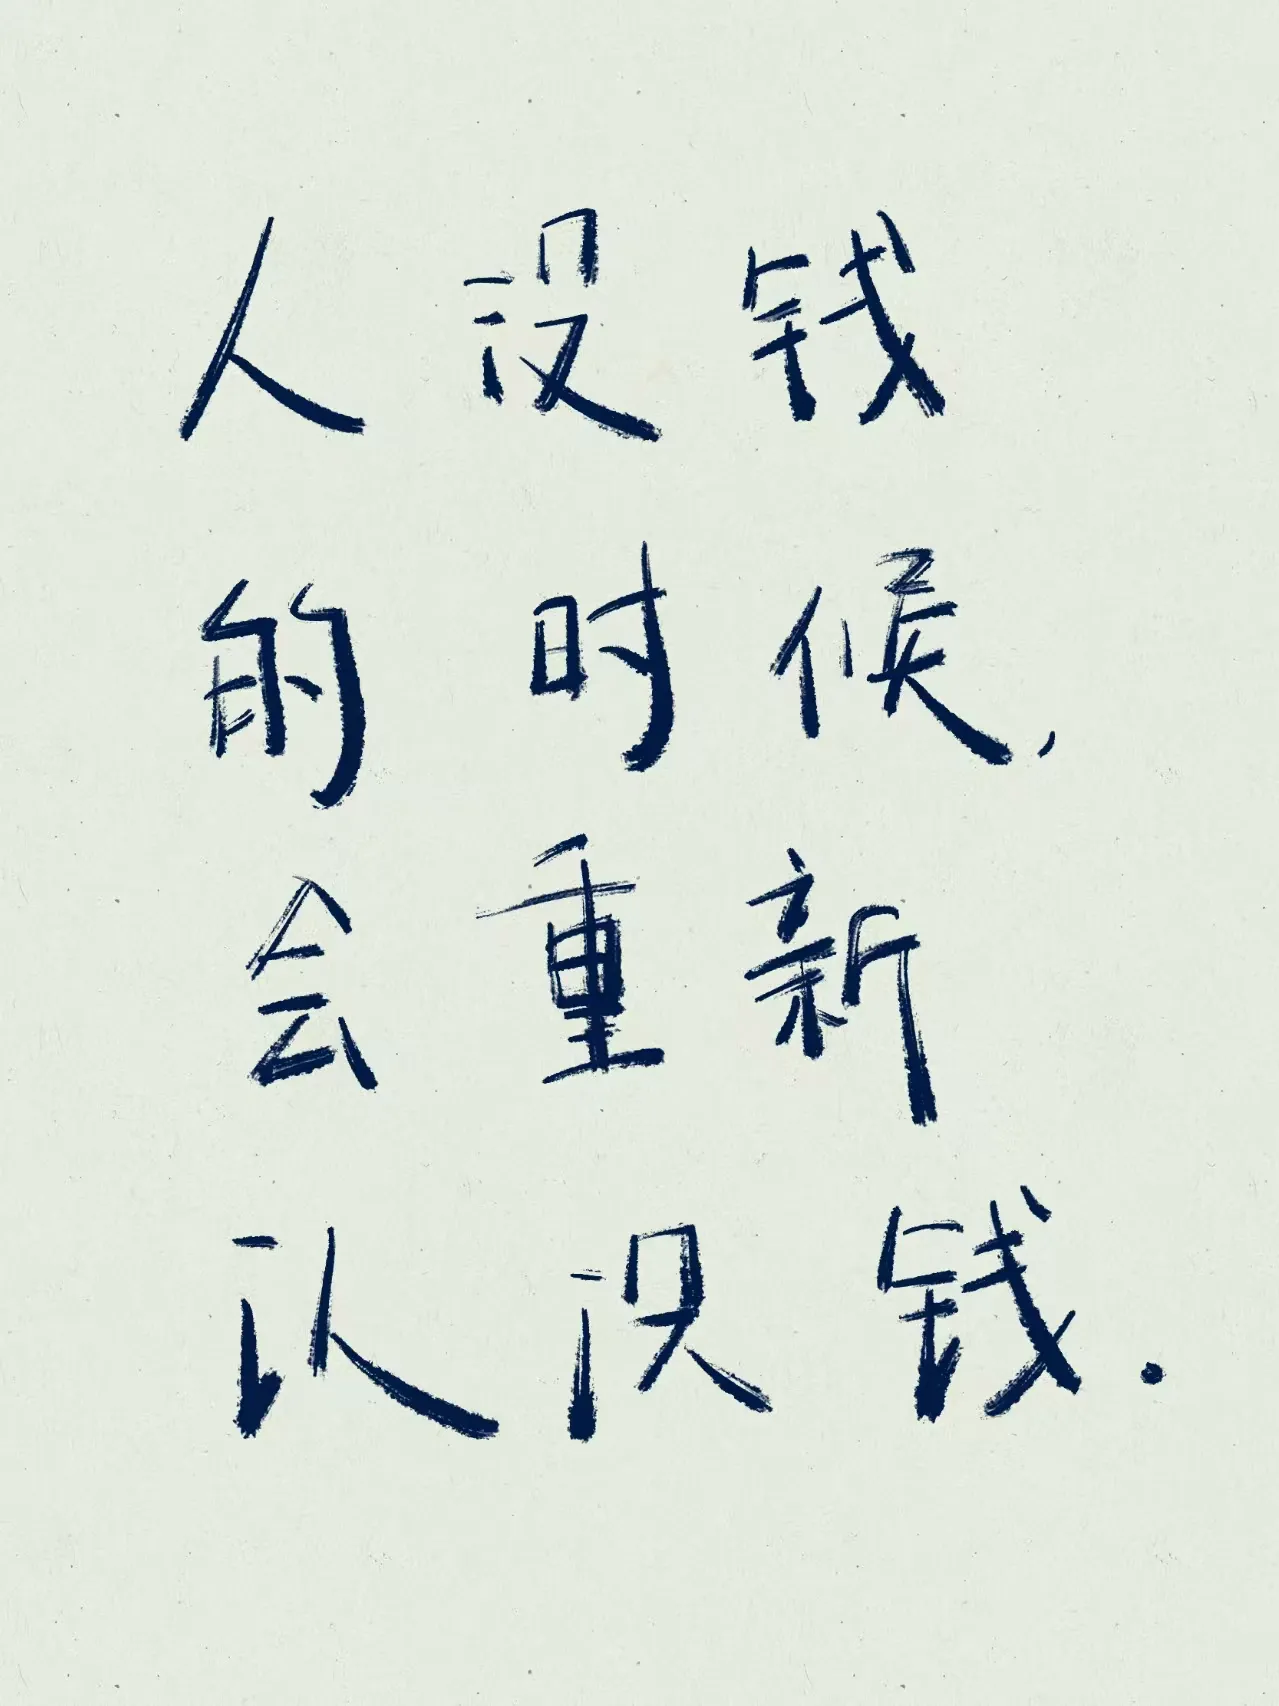 人没钱
的时候,
会重新
认识钱.